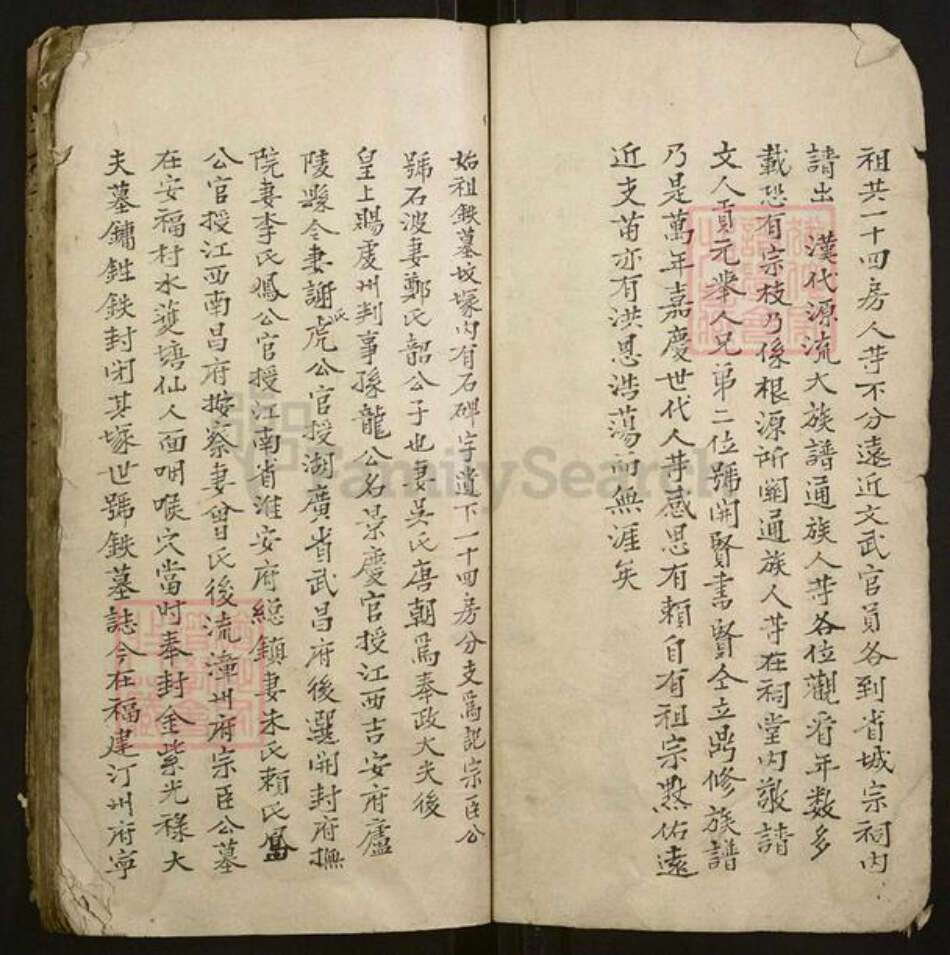 祖共一十四房人等不分遠近文武官員各到省城宗祠內
請出 漢代源流大族譜通族人等各位觀看年數多
載恐有宗枝乃係根源所關通族人等在祠堂內敬請
文人貢元舉人兄弟二位號開賢書賢仝立禹修族譜
乃是萬年嘉慶世代人等感思有賴自有祖宗默佑遠
近支苗亦有洪恩浩蕩而無涯矣
始祖鉄墓坟塚內有石碑字遺下一十四房分支為記宗臣公
號石波妻鄭氏韶公子也妻吳氏唐朝為奉政大夫後
皇上賜虔州判事孫龍公名景慶官授江西吉安府廬
陵縣令妻謝氏虎公官授湖廣省武昌府後選開封府撫
院妻李氏鳳公官授江南省淮安府總鎮妻朱氏賴氏鳳
公官授江西南昌府按察妻曾氏後流漳州府宗臣公墓
在安福村水獲塘仙人面咽喉穴當时奉封金紫光祿大
夫墓鏽鉎鉄封闭其塚世號鉄墓誌今在福建汀州府寧
FamilySearch